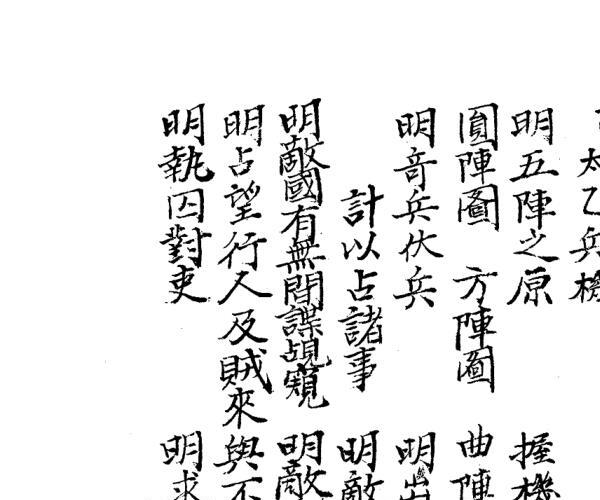 太乙兵機
明五陣之原　握機
圓陣圖　方陣圖　曲陣
明竒兵伏兵　明
計以占諸事　明敵
明敵國有無間諜覘窺　明敵
明占望行人及賊來與不
明執囚對吏　明求